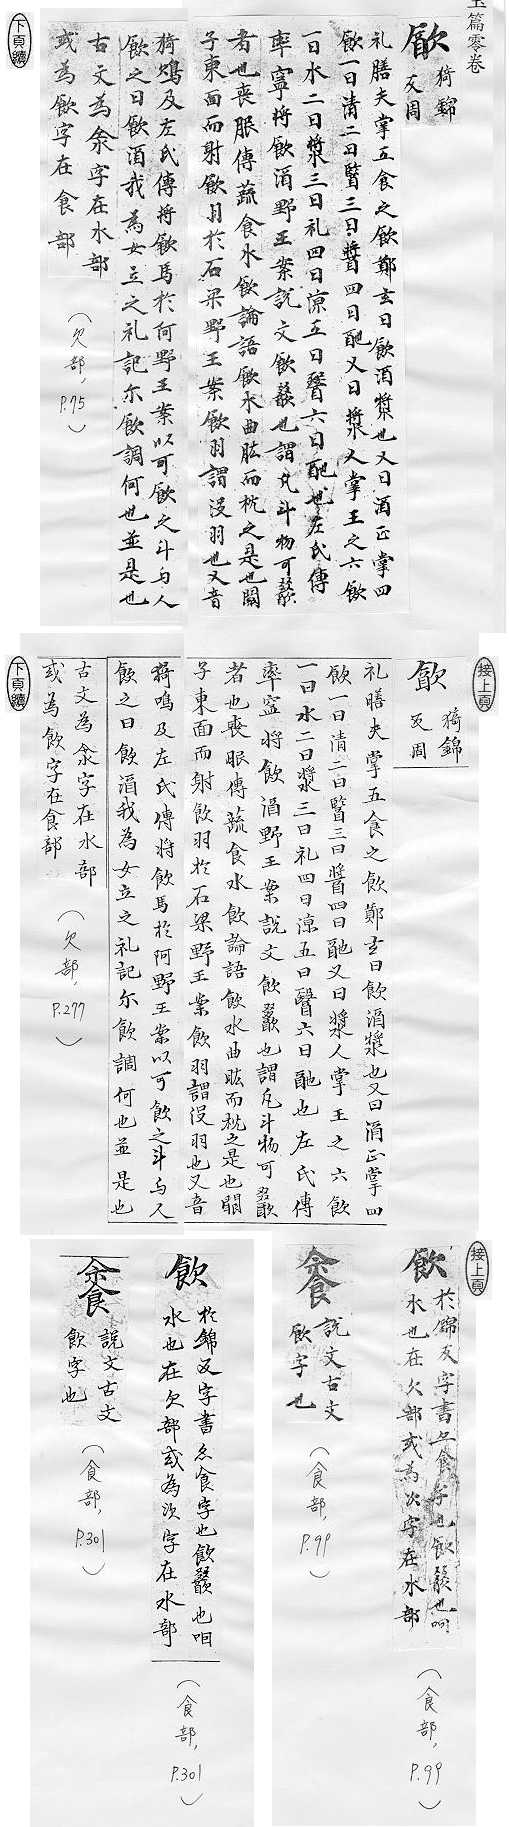 玉篇零卷
㱃 猗錦
反周
礼膳夫掌五食之飲鄭玄曰飲酒漿也又曰酒正掌四
飲一曰清二曰醫三曰醬四曰酏又曰漿人掌王之六飲
一曰水二曰漿三曰礼四曰涼五曰醫六曰酏也左氏傳
率寧将飲酒野王案說文飲歠也謂凡斗物可歠
者也喪服傳蔬食水飲論語飲水曲肱而枕之是也闗
子東面而射飲羽於石梁野王案飲羽謂没羽也又音
猗鴆反左氏傳将飲馬於何野王案以可飲之斗与人
飲之曰飲酒我為女立之礼記尔飲調何也並是也
古文為㳄字在水部
或為飲字在食部
(欠部,
P.75)
下頁續
接上頁
㱃 猗錦
反周
礼膳夫掌五食之飲鄭玄曰飲酒漿也又曰酒正掌四
飲一曰清二曰醫三曰醬四曰酏又曰漿人掌王之六飲
一曰水二曰漿三曰礼四曰涼五曰醫六曰酏也左氏傳
率寍将飲酒野王案說文飲歠也謂凡斗物可歠
者也喪服傳蔬食水飲論語飲水曲肱而枕之是也闗
子東面而射飲羽於石梁野王案飲羽謂没羽也又音
猗鳴反左氏傳将飲馬於阿野王案以可飲之斗与人
飲之曰飲酒我為女立之礼記尔飲調何也並是也
古文為㳄字在水部
或為飲字在食部
(欠部,
P.277)
下頁續
接上頁
飲 於錦反字書亦㱃字也飲歠也咽
水也在欠部或為㳄字在水部
(食部,
P.99)
說文古文
飲字也
(食部,
P.99)
飲 於錦反字書亦㱃字也飲歠也咽
水也在欠部或為㳄字在水部
(食部,
P.301)
說文古文
飲字也
(食部,
P.301)